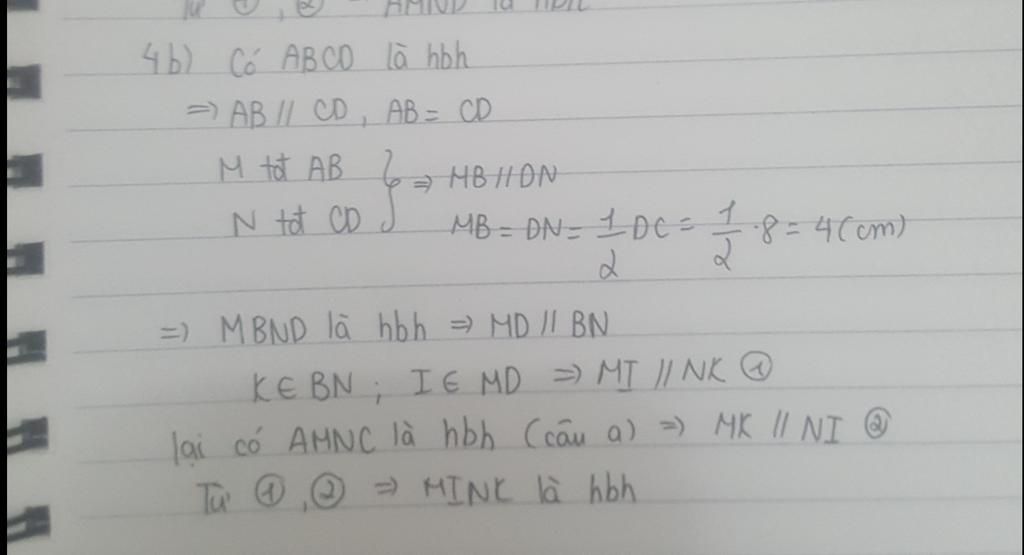 Từ ①, ② → AMND là hbh
4b) Có ABCD là hbh
=> AB // CD, AB = CD
M tđ AB
N tđ CD } => MB // DN
MB = DN = 1/2 DC = 1/2 . 8 = 4 (cm)
=> MBND là hbh => MD // BN
K ∈ BN ; I ∈ MD => MI // NK ①
lại có AMNC là hbh (câu a) => MK // NI ②
Từ ①, ② => MINK là hbh